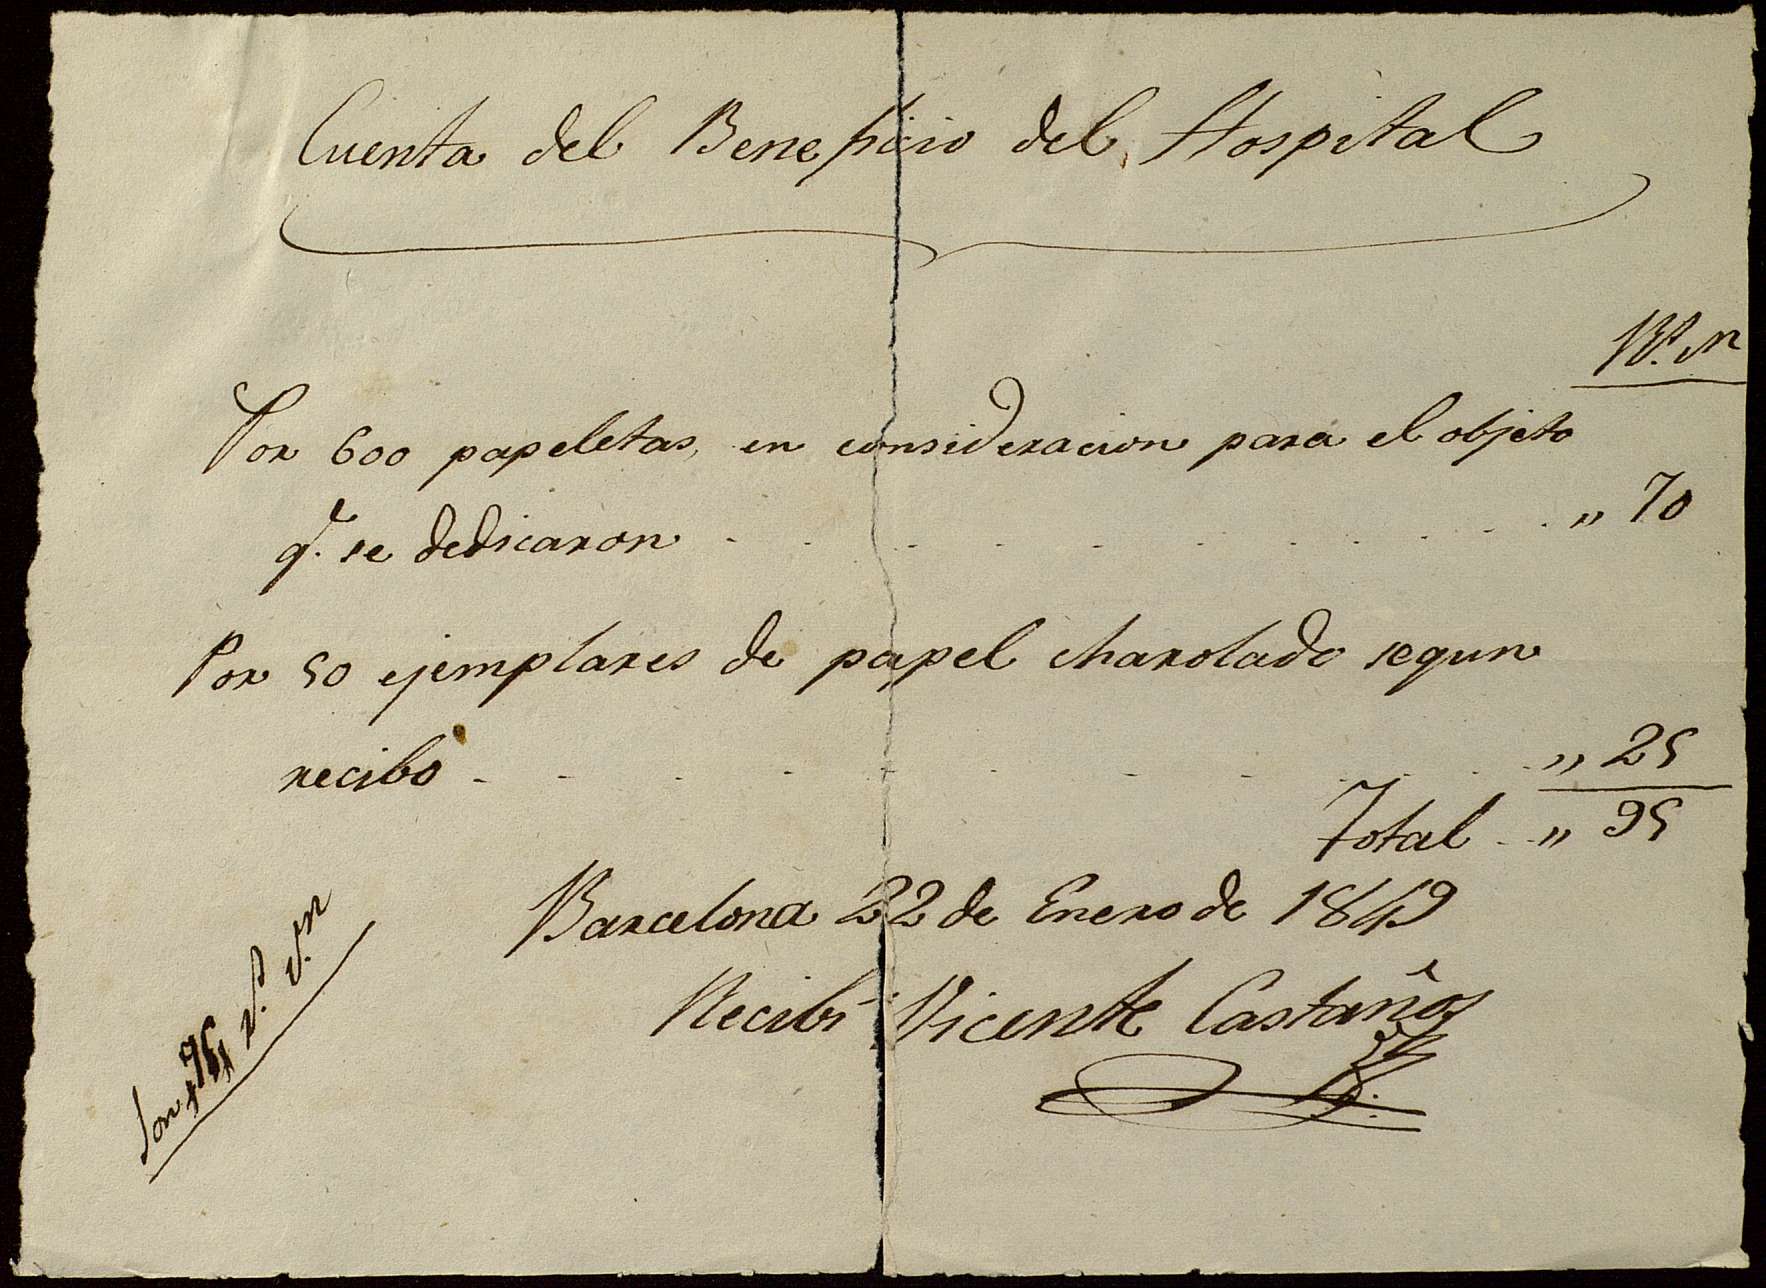 Cuenta del Beneficio del Hospital
Rs. vn
Por 600 papeletas, en consideracion para el objeto
q.e se dedicaron . . . . . . . . . . „ 70
Por 50 ejemplares de papel charolado segun
recibo . . . . . . . . . . „ 25
Total . . „ 95
Barcelona 22 de Enero de 1849
Recibí Vicente Castaños
Son 95 rs. vn